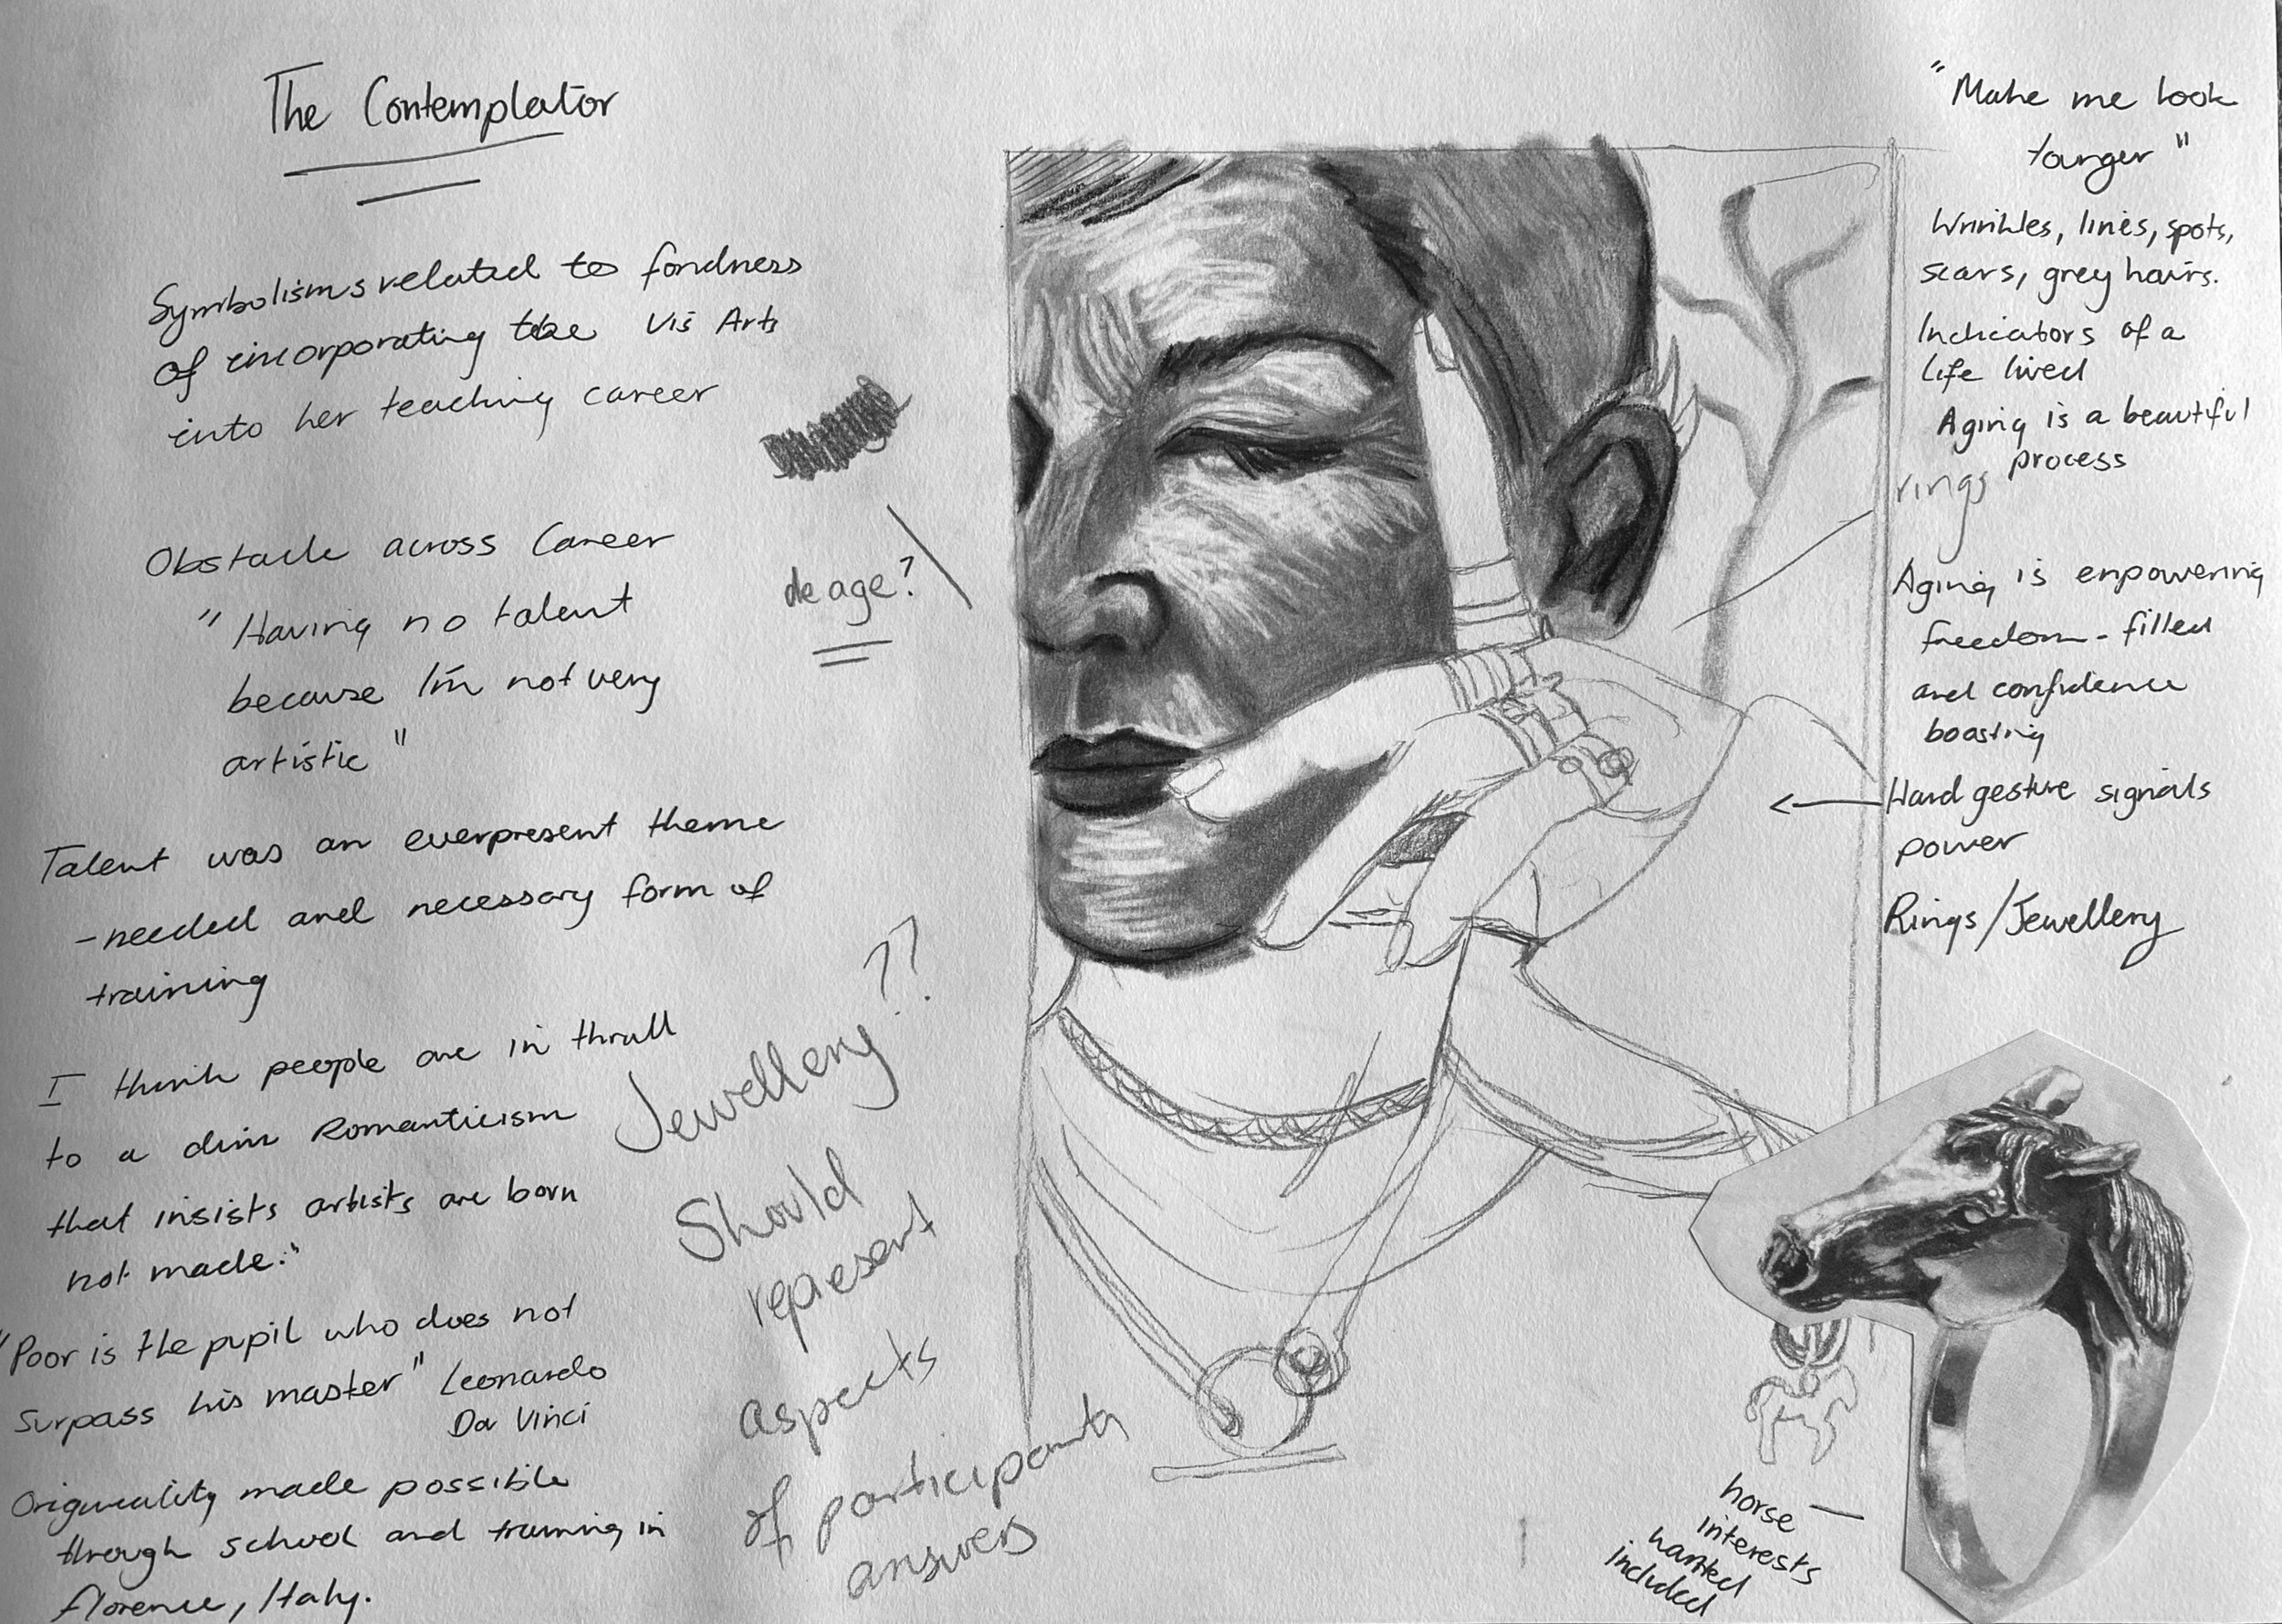 The Contemplator
Symbolisms related to fondness
of incorporating the Vis Arts
into her teaching career
Obstacle across Career
"Having no talent
because I'm not very
artistic"
Talent was an everpresent theme
-needed and necessary form of
training
I think people are in thrall
to a dim Romanticism
that insists artists are born
not made."
"Poor is the pupil who does not
surpass his master" Leonardo
Da Vinci
Originality made possible
through school and training in
florence, Italy.
de age?
Jewellery??
Should
represent
aspects
of participants
answers
"Make me look
Younger"
Wrinkles, lines, spots,
scars, grey hairs.
Indicators of a
life lived
Aging is a beautiful
process
rings
Aging is empowering
freedom-filled
and confidence
boasting
Hand gesture signals
power
Rings/Jewellery
horse
interests
wanted
included